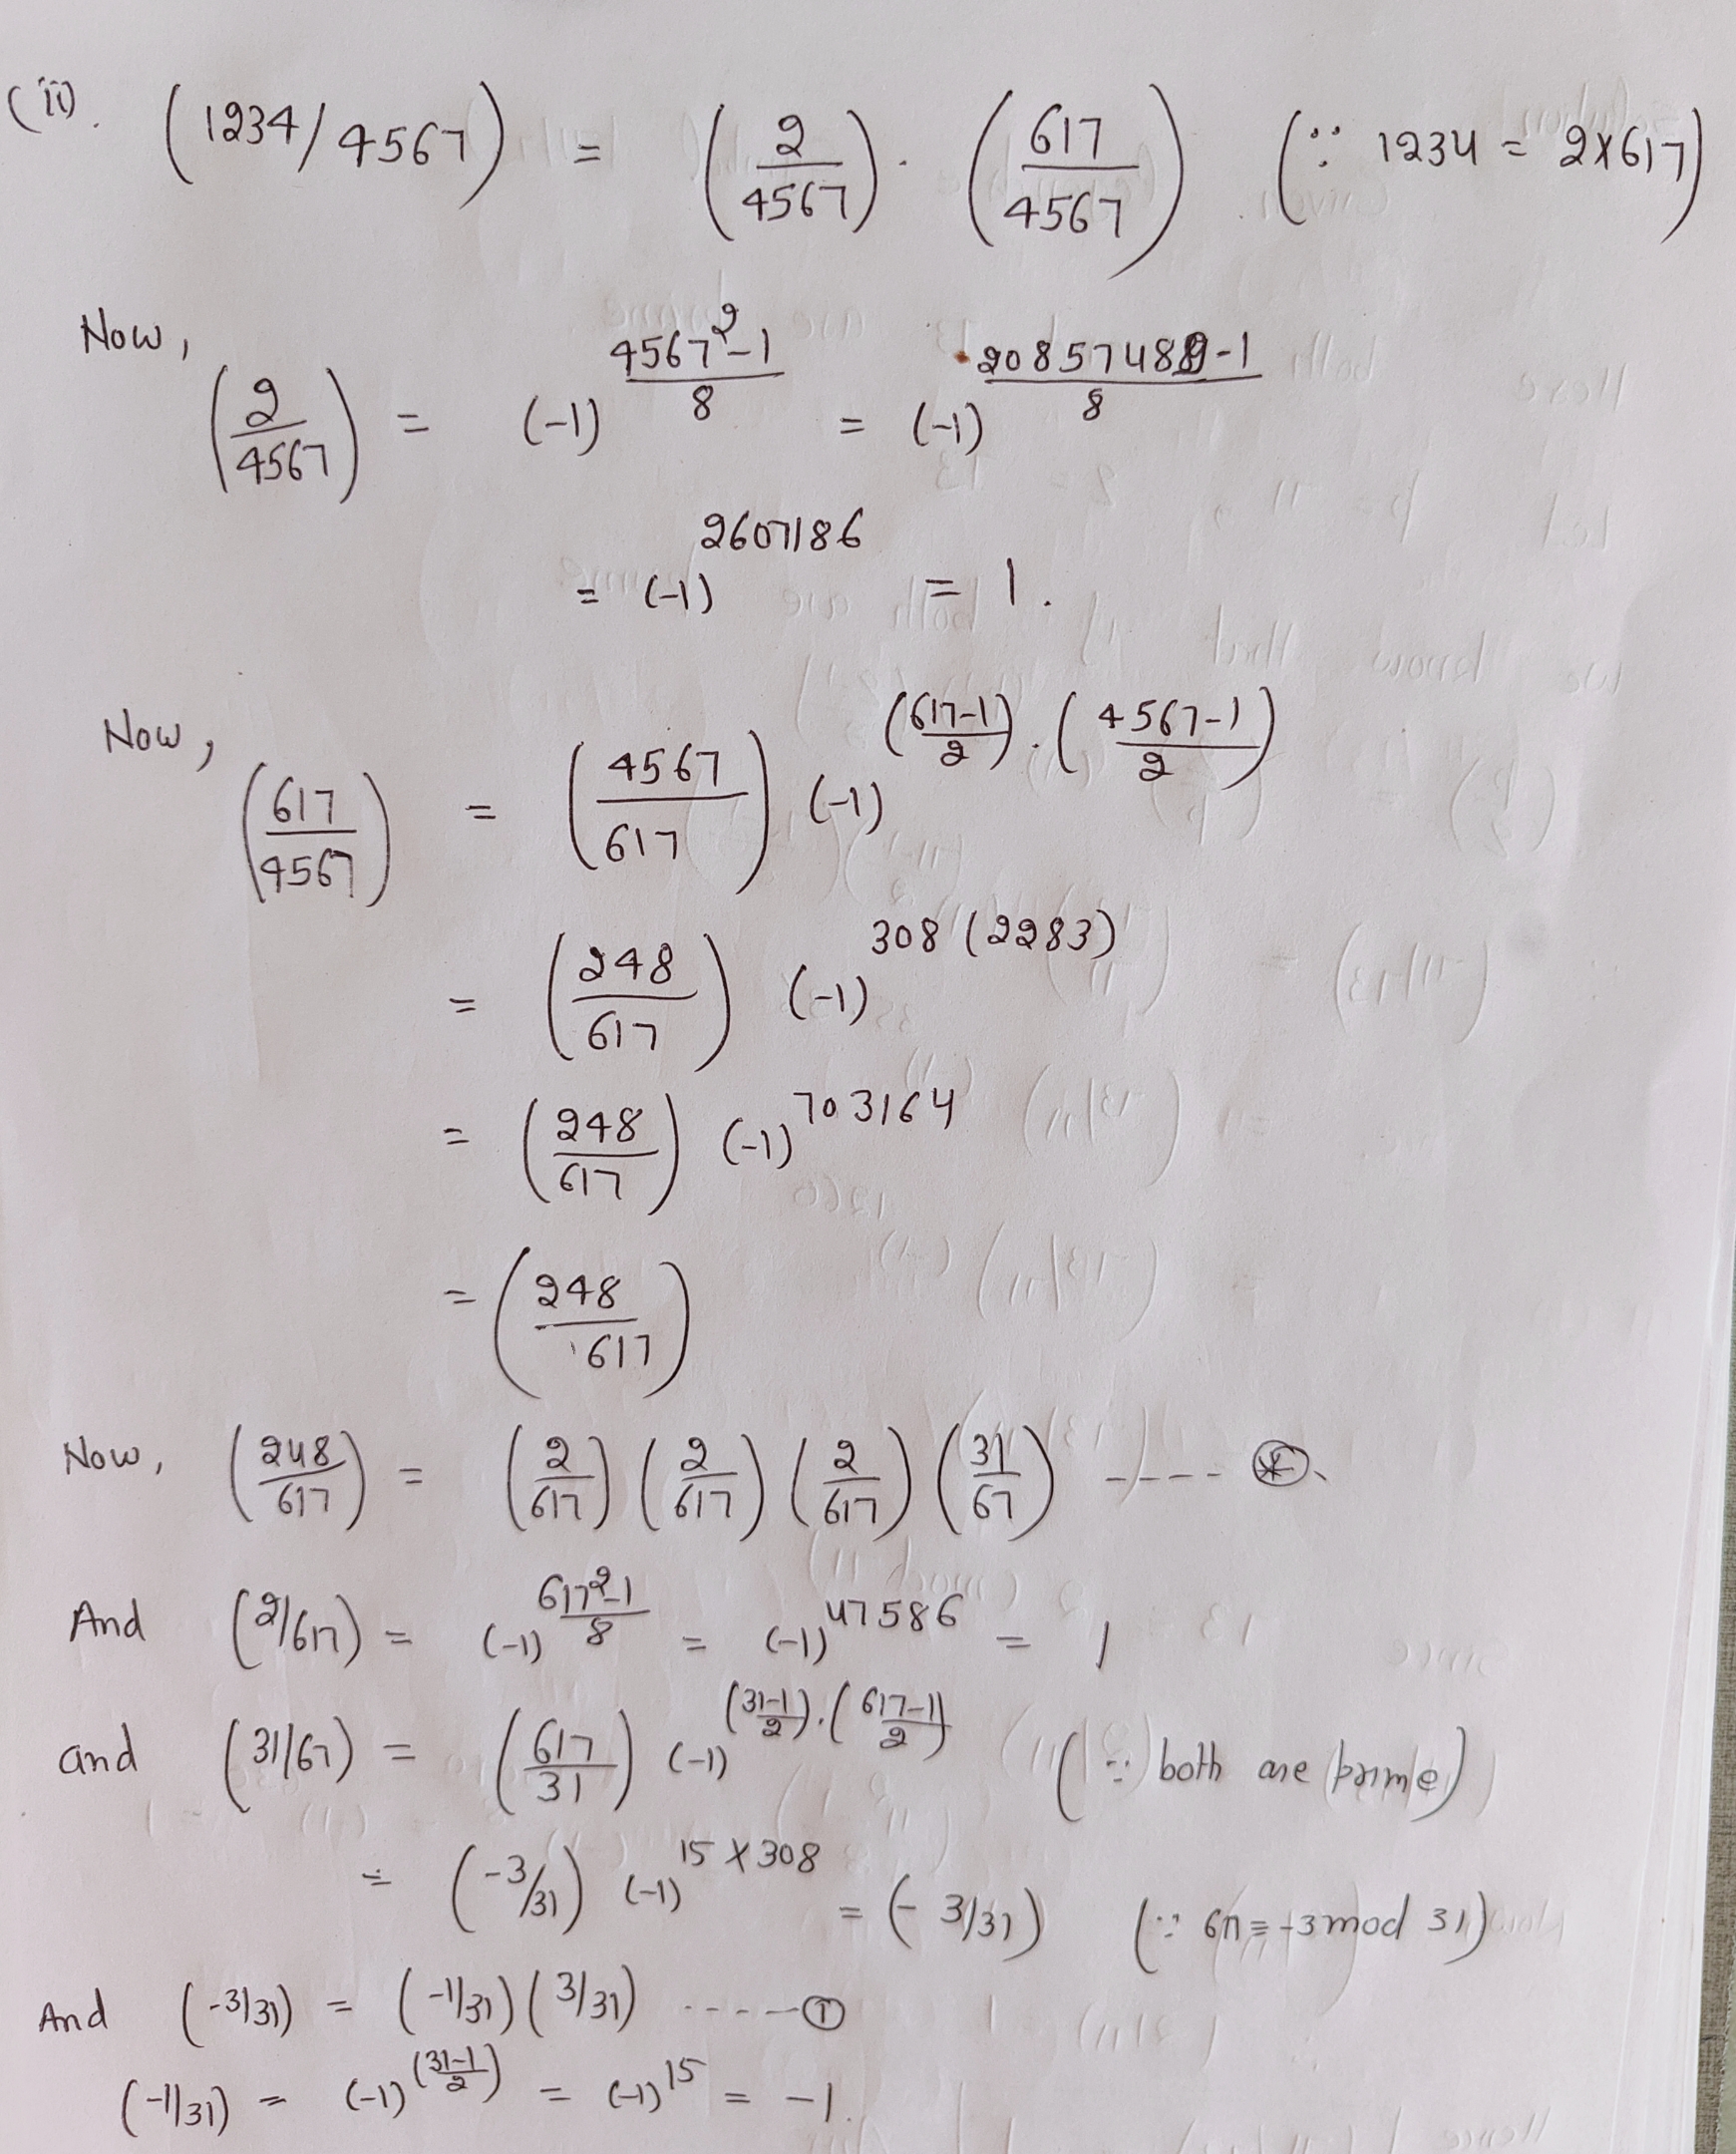 (ii). (1234/4567) = (2/4567) . (617/4567) (∵ 1234 = 2×617)
Now,
(2/4567) = (-1)^((4567²-1)/8) = (-1)^((20857489-1)/8)
= (-1)^2607186 = 1.
Now,
(617/4567) = (4567/617) (-1)^((617-1)/2).((4567-1)/2)
= (248/617) (-1)^308(2283)
= (248/617) (-1)^703164
= (248/617)
Now, (248/617) = (2/617) (2/617) (2/617) (31/67) ---- ⊛.
And (2/617) = (-1)^((617²-1)/8) = (-1)^47586 = 1
and (31/67) = (617/31) (-1)^((31-1)/2).((617-1)/2) (∵ both are prime)
= (-3/31) (-1)^15×308 = (-3/31) (∵ 617 ≡ -3 mod 31)
And (-3/31) = (-1/31) (3/31) -----①
(-1/31) = (-1)^((31-1)/2) = (-1)^15 = -1.